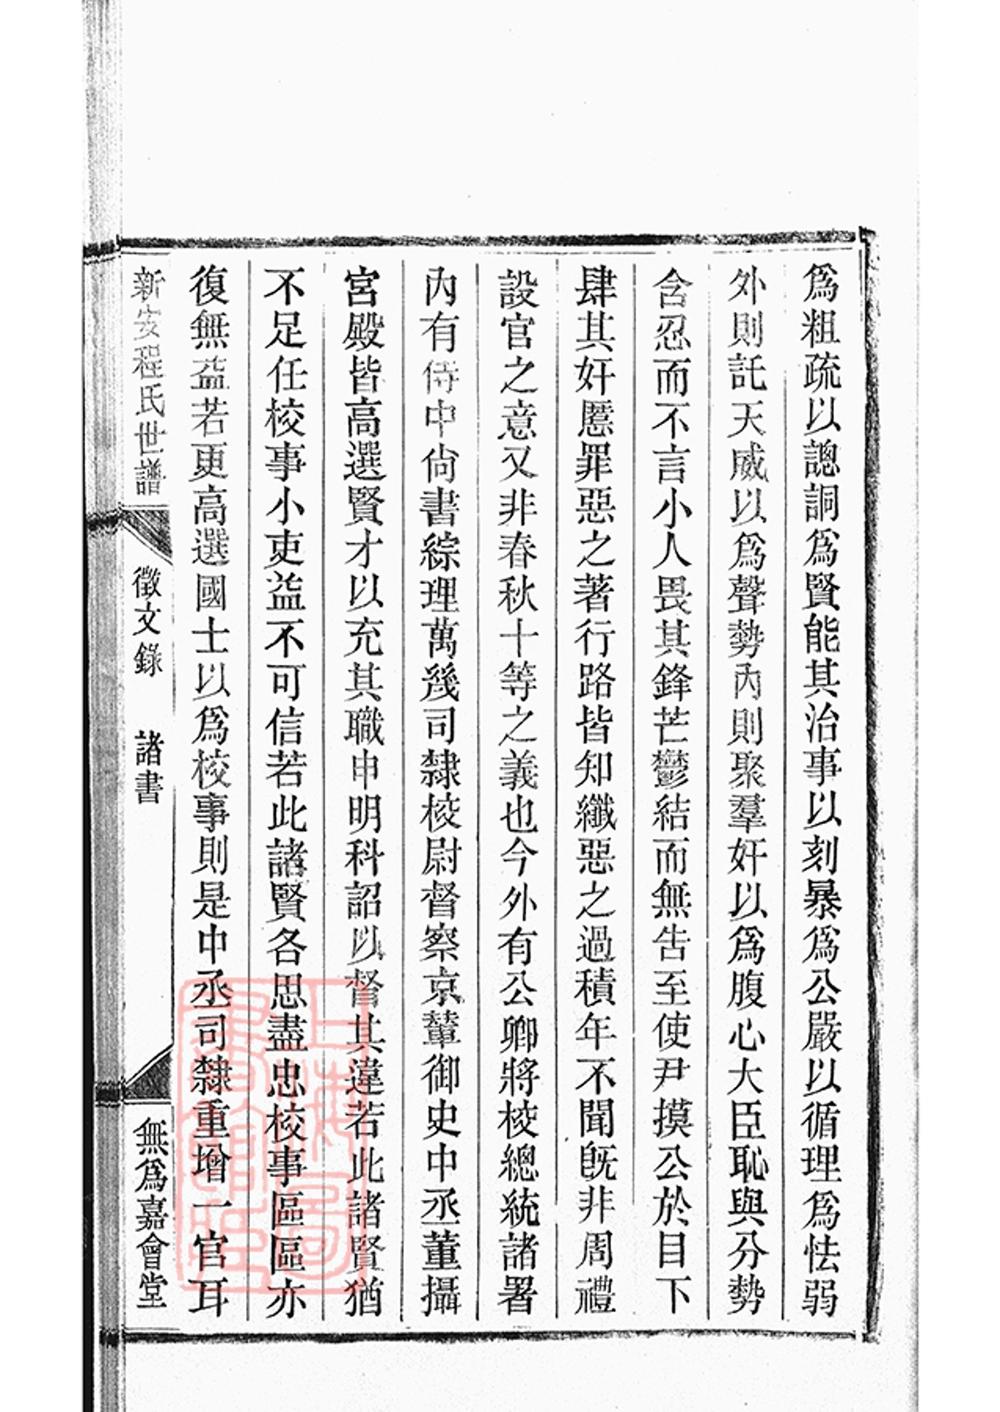 爲粗疏以謥詷爲賢能其治事以刻暴爲公嚴以循理爲怯弱
外則託天威以爲聲勢內則聚羣奸以爲腹心大臣恥與分勢
含忍而不言小人畏其鋒芒鬱結而無告至使尹摸公於目下
肆其奸慝罪惡之著行路皆知纖惡之過積年不聞旣非周禮
設官之意又非春秋十等之義也今外有公卿將校總統諸署
內有侍中尙書綜理萬幾司隸校尉督察京輦御史中丞董攝
宮殿皆高選賢才以充其職申明科詔以督其違若此諸賢猶
不足任校事小吏益不可信若此諸賢各思盡忠校事區區亦
復無益若更高選國士以爲校事則是中丞司隸重增一官耳
新安程氏世譜
徵文錄 諸書
無爲嘉會堂
上海圖書館藏